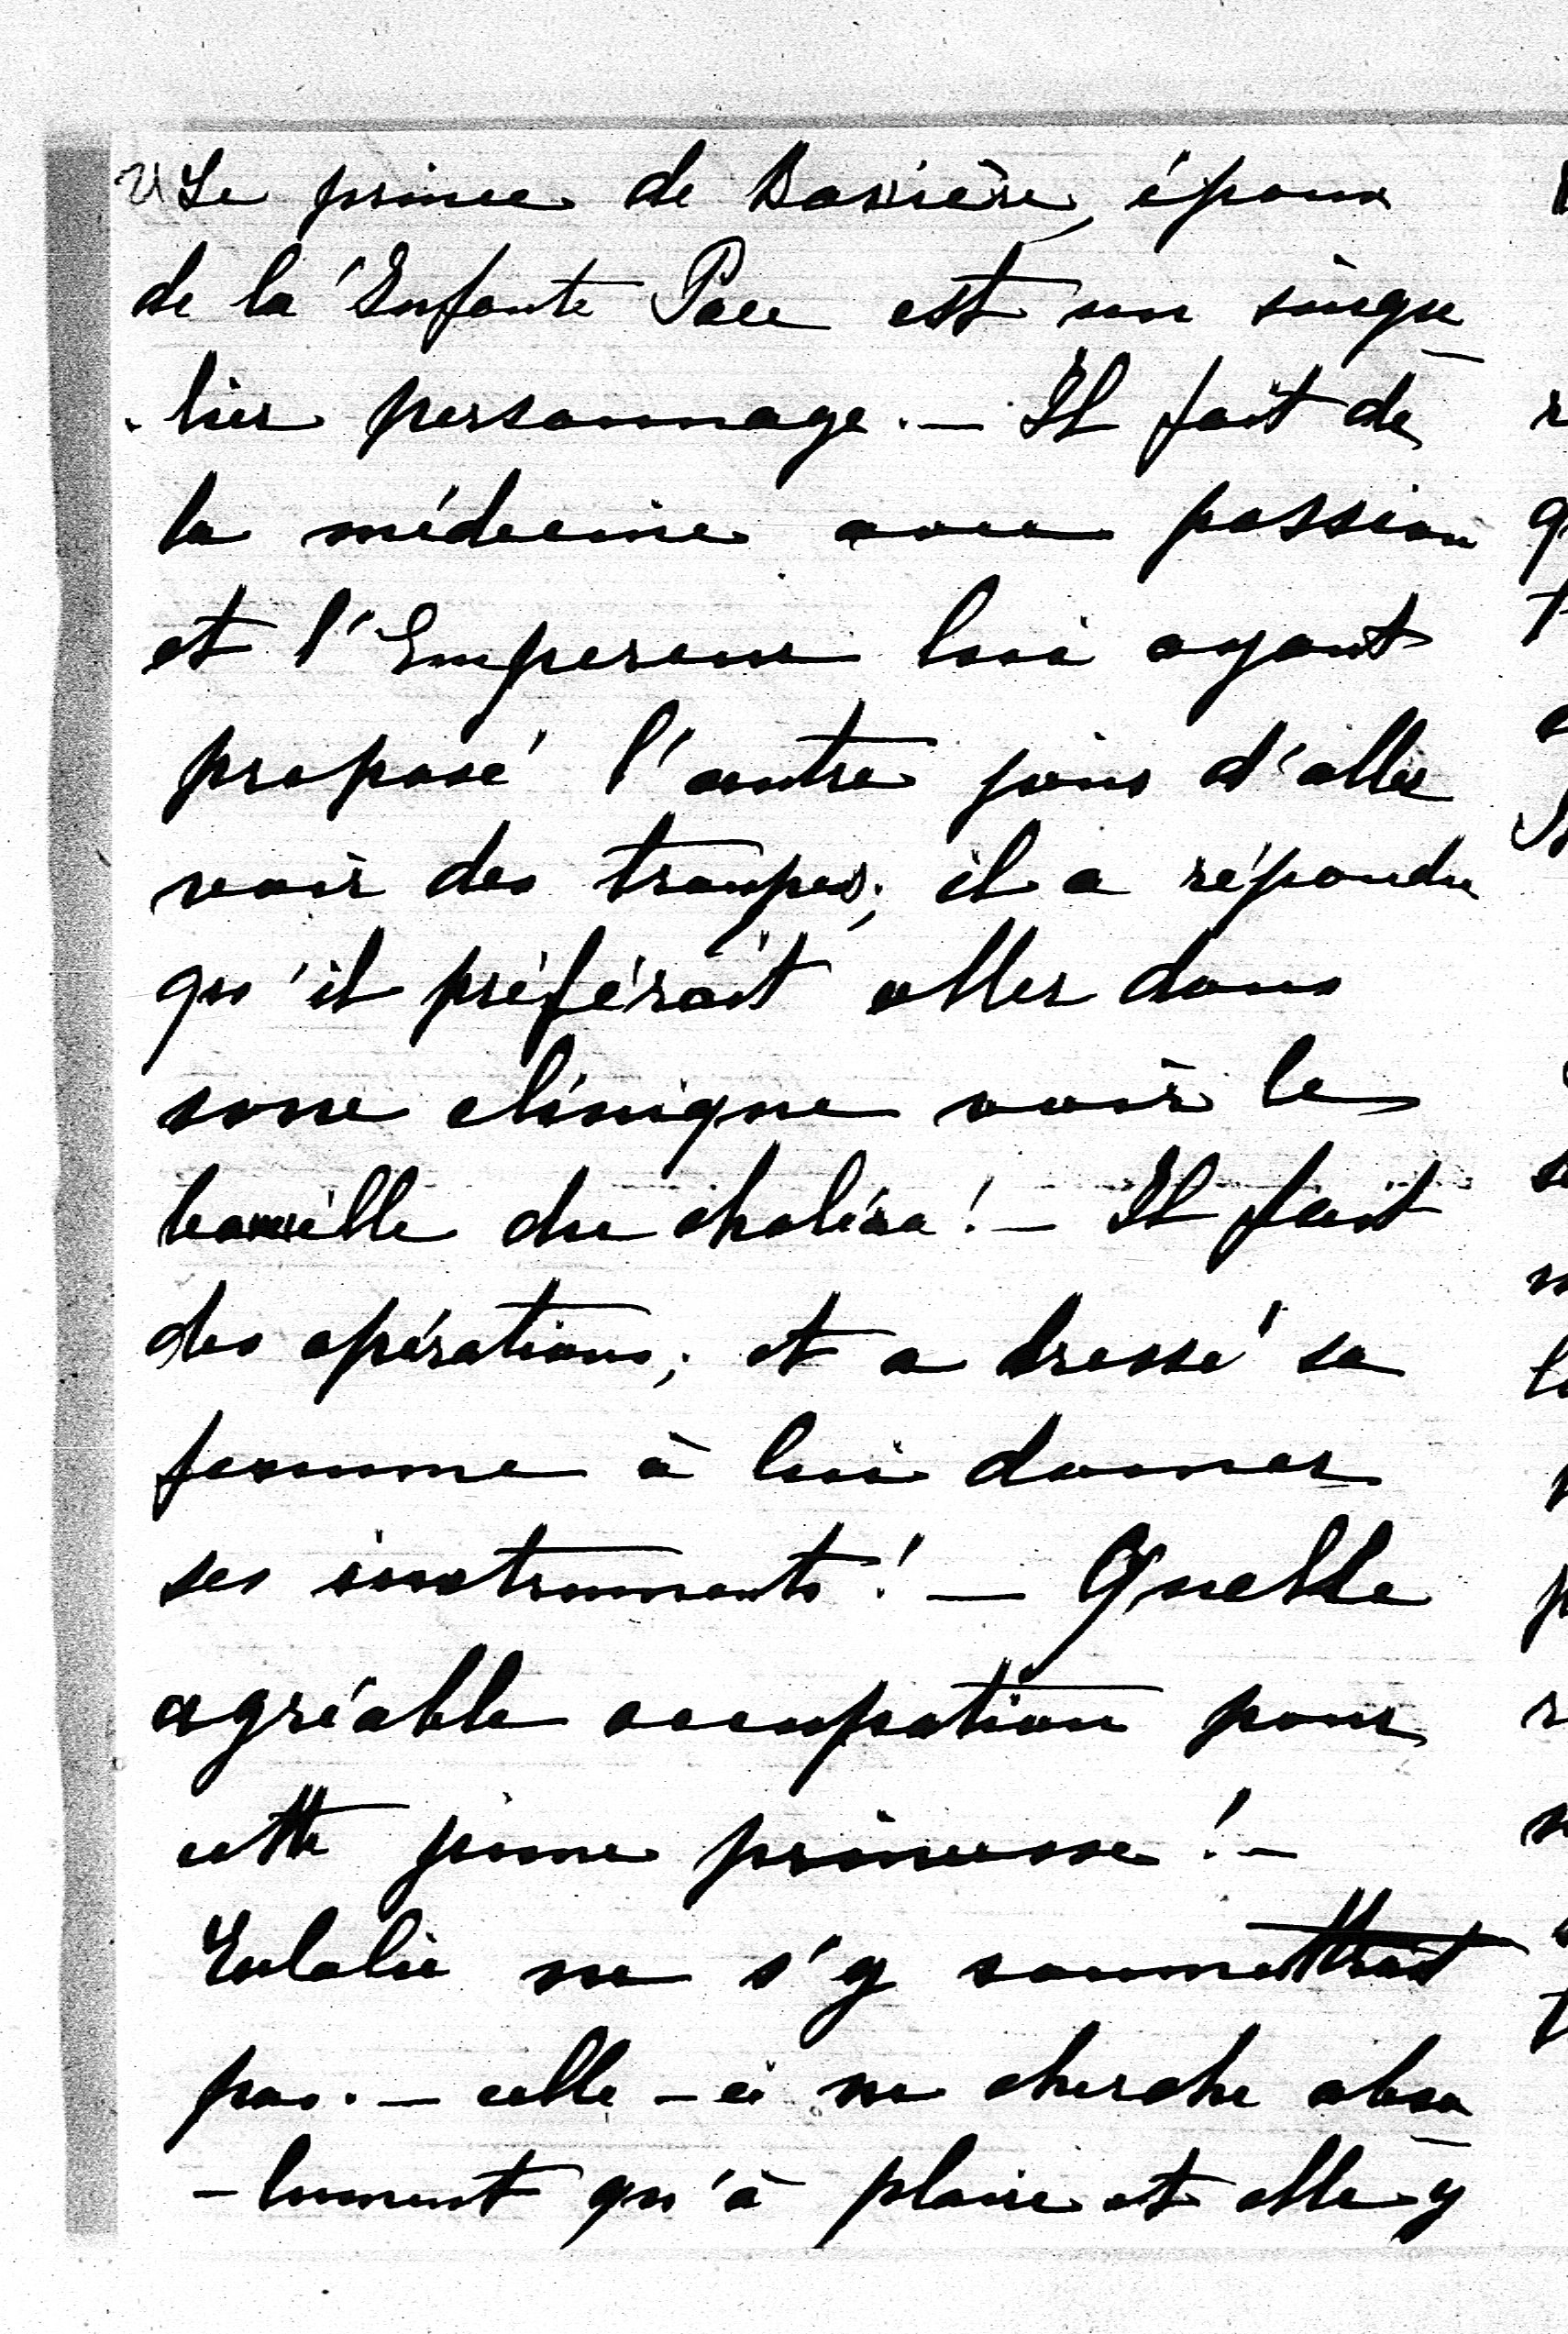 Le prince de Bavière, époux
de la Enfante Paee est un singu
-lier personnage. — Il fait de
la médecine avec passion
et l'Empereur lui ayant
proposé l'autre jour d'aller
voir des troupes; il a répondu
qu'il préférait aller dans
une clinique voir le
bacille du choléra! — Il fait
des opérations; et a dressé sa
femme à lui donner
ses instruments! — Quelle
agréable occupation pour
cette jeune princesse! —
Eulalie ne s'y soumettrait
pas. — celle-ci ne cherche abso
-lument qu'à plaire et elle y